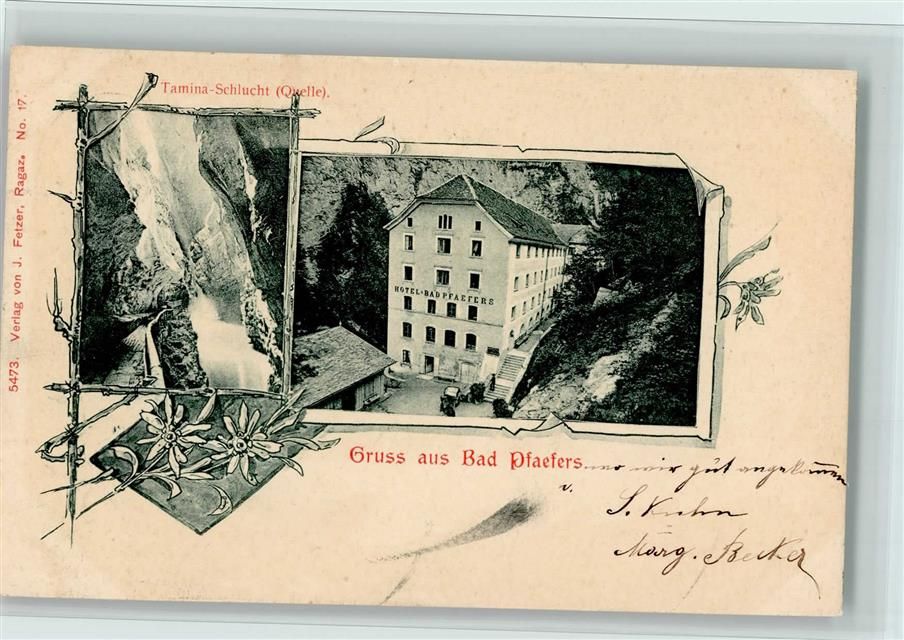 Tamina-Schlucht (Quelle).
5473. Verlag von J. Fetzer, Ragaz. No. 17.
HOTEL BAD PFAEFERS
Gruss aus Bad Pfaefers. wo wir gut angekommen
v.
S. Kuhn
Marg. Becker